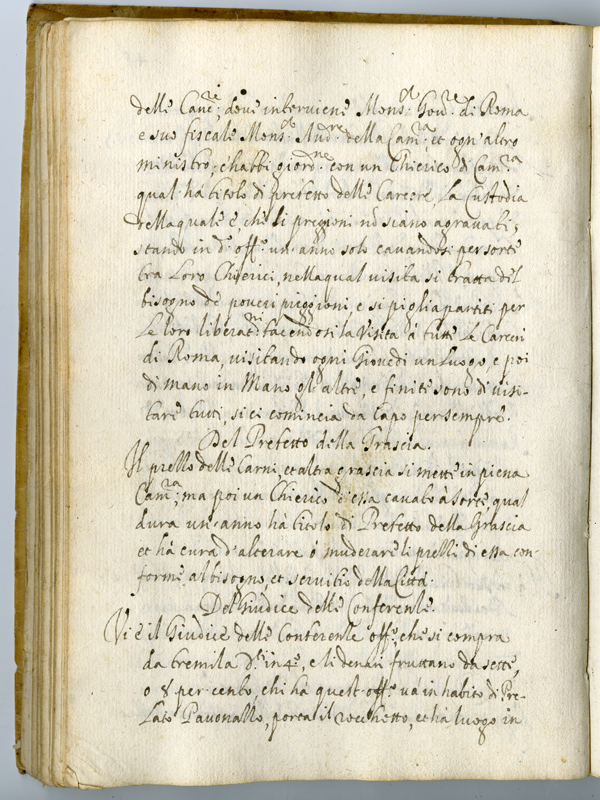 delle Canc.ie, dove interviene Mons.r Gov.re di Roma
e suo fiscale Mons.r Aud.re della Cam.a et ogn'altro
ministro, c'habbi giord.ne con un Chierico di Cam.ra
qual hà titolo di prefetto delle Carcere La Custodia
della quale è, che li pregioni nō siano agravati,
stando in d.o off.o un anno solo cavandosi per sorte
tra Loro Chierici, nella qual visita si tratta del
bisogno de poveri priggioni, e si piglia partiti per
Le loro liberat.ni facendosi la Visita à tutte Le Carceri
di Roma, visitando ogni Giovedi un Luogo, e poi
di mano in Mano gl'altre, e finite sono di visi-
tare tutti, si ci comincia da Capo per sempre.
Del Prefetto della Grascia.
Il prezzo delle Carni, et altra grascia si mette in piena
Cam.ra, ma poi un Chierico di essa cavato à sorte, qual
dura un anno hà titolo di Prefetto della Grascia
et hà cura d'alterare ò muderare li prezzi di essa con-
forme al bisogno, et servitio della Città.
Del Giudice delle Conferentie.
Vi è il Giudice delle Conferentie off.o, che si compra
da tremila d.ti in 4.e, e li denari fruttano da sette,
o 8 per cento, chi hà quest off.o và in habito di Pre-
lato Pavonazzo, porta il rocchetto, et hà luogo in